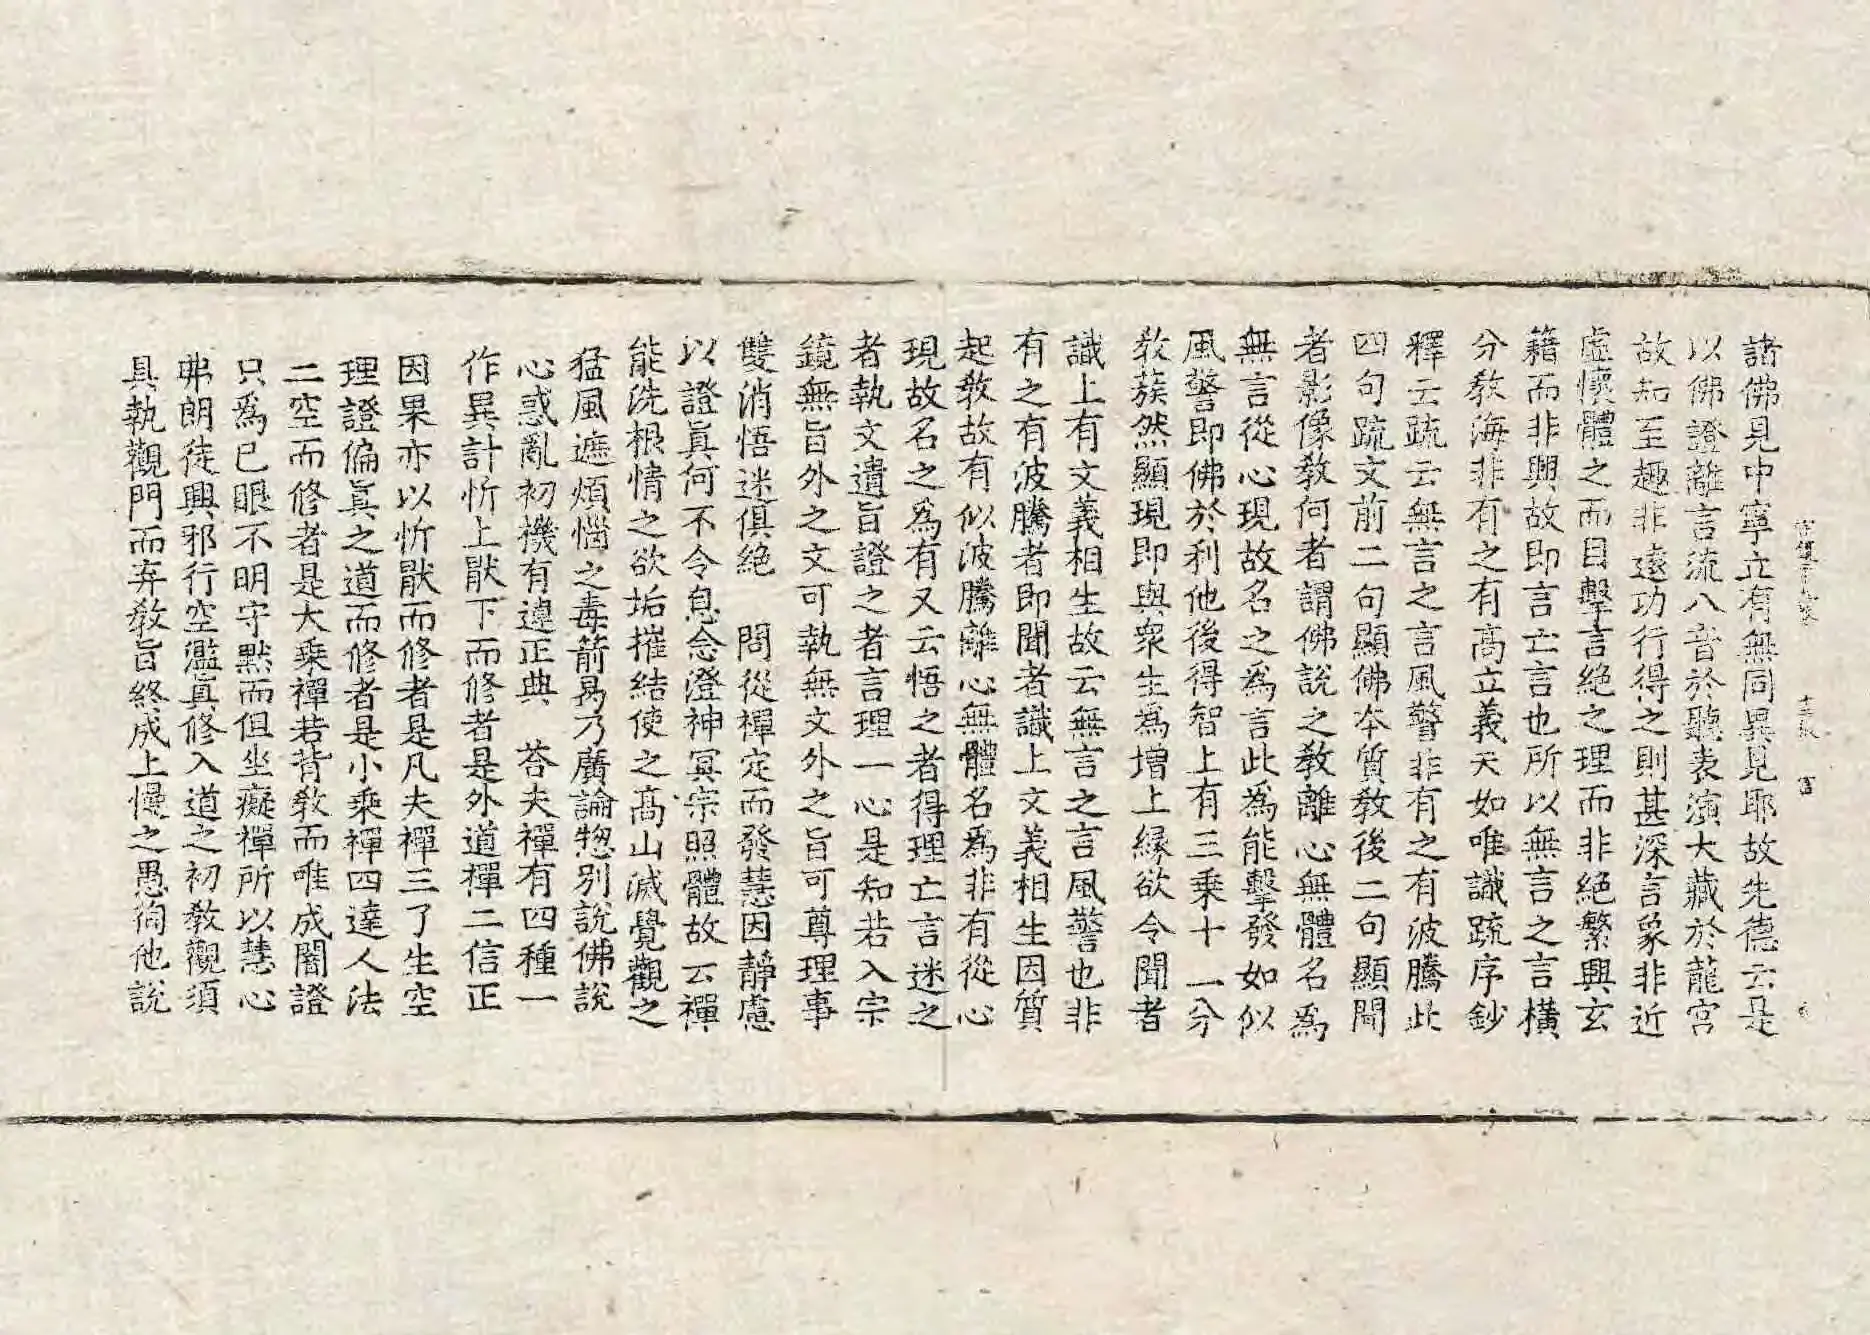 諸佛見中寧立有無同異見耶故先德云是
以佛證離言流八音於聽表演大藏於龍宮
故知至趣非遠功行得之則甚深言象非近
虛懷體之而目擊言絕之理而非絕繁興玄
籍而非興故即言亡言也所以無言之言橫
分教海非有之有高立義天如唯識䟽序鈔
釋云䟽云無言之言風警非有之有波騰此
四句䟽文前二句顯佛本質教後二句顯聞
者影像教何者謂佛說之教離心無體名爲
無言從心現故名之爲言此爲能擊發如似
風警即佛於利他後得智上有三乘十一分
教蔟然顯現即與衆生爲增上緣欲令聞者
識上有文義相生故云無言之言風警也非
有之有波騰者即聞者識上文義相生因質
起教故有似波騰離心無體名爲非有從心
現故名之爲有又云悟之者得理亡言迷之
者執文遺旨證之者言理一心是知若入宗
鏡無旨外之文可執無文外之旨可尊理事
雙消悟迷俱絕　問從禪定而發慧因靜慮
以證眞何不令息念澄神冥宗照體故云禪
能洗根情之欲垢摧結使之高山滅覺觀之
猛風遮煩惱之毒箭曷乃廣論惣別說佛說
心惑亂初機有違正典　荅夫禪有四種一
作異計忻上猒下而修者是外道禪二信正
因果亦以忻猒而修者是凡夫禪三了生空
理證偏眞之道而修者是小乘禪四達人法
二空而修者是大乘禪若背教而唯成闇證
只爲已眼不明守默而但坐癡禪所以慧心
弗朗徒興邪行空濫眞修入道之初教觀須
具執觀門而弃教旨終成上慢之愚徇他說